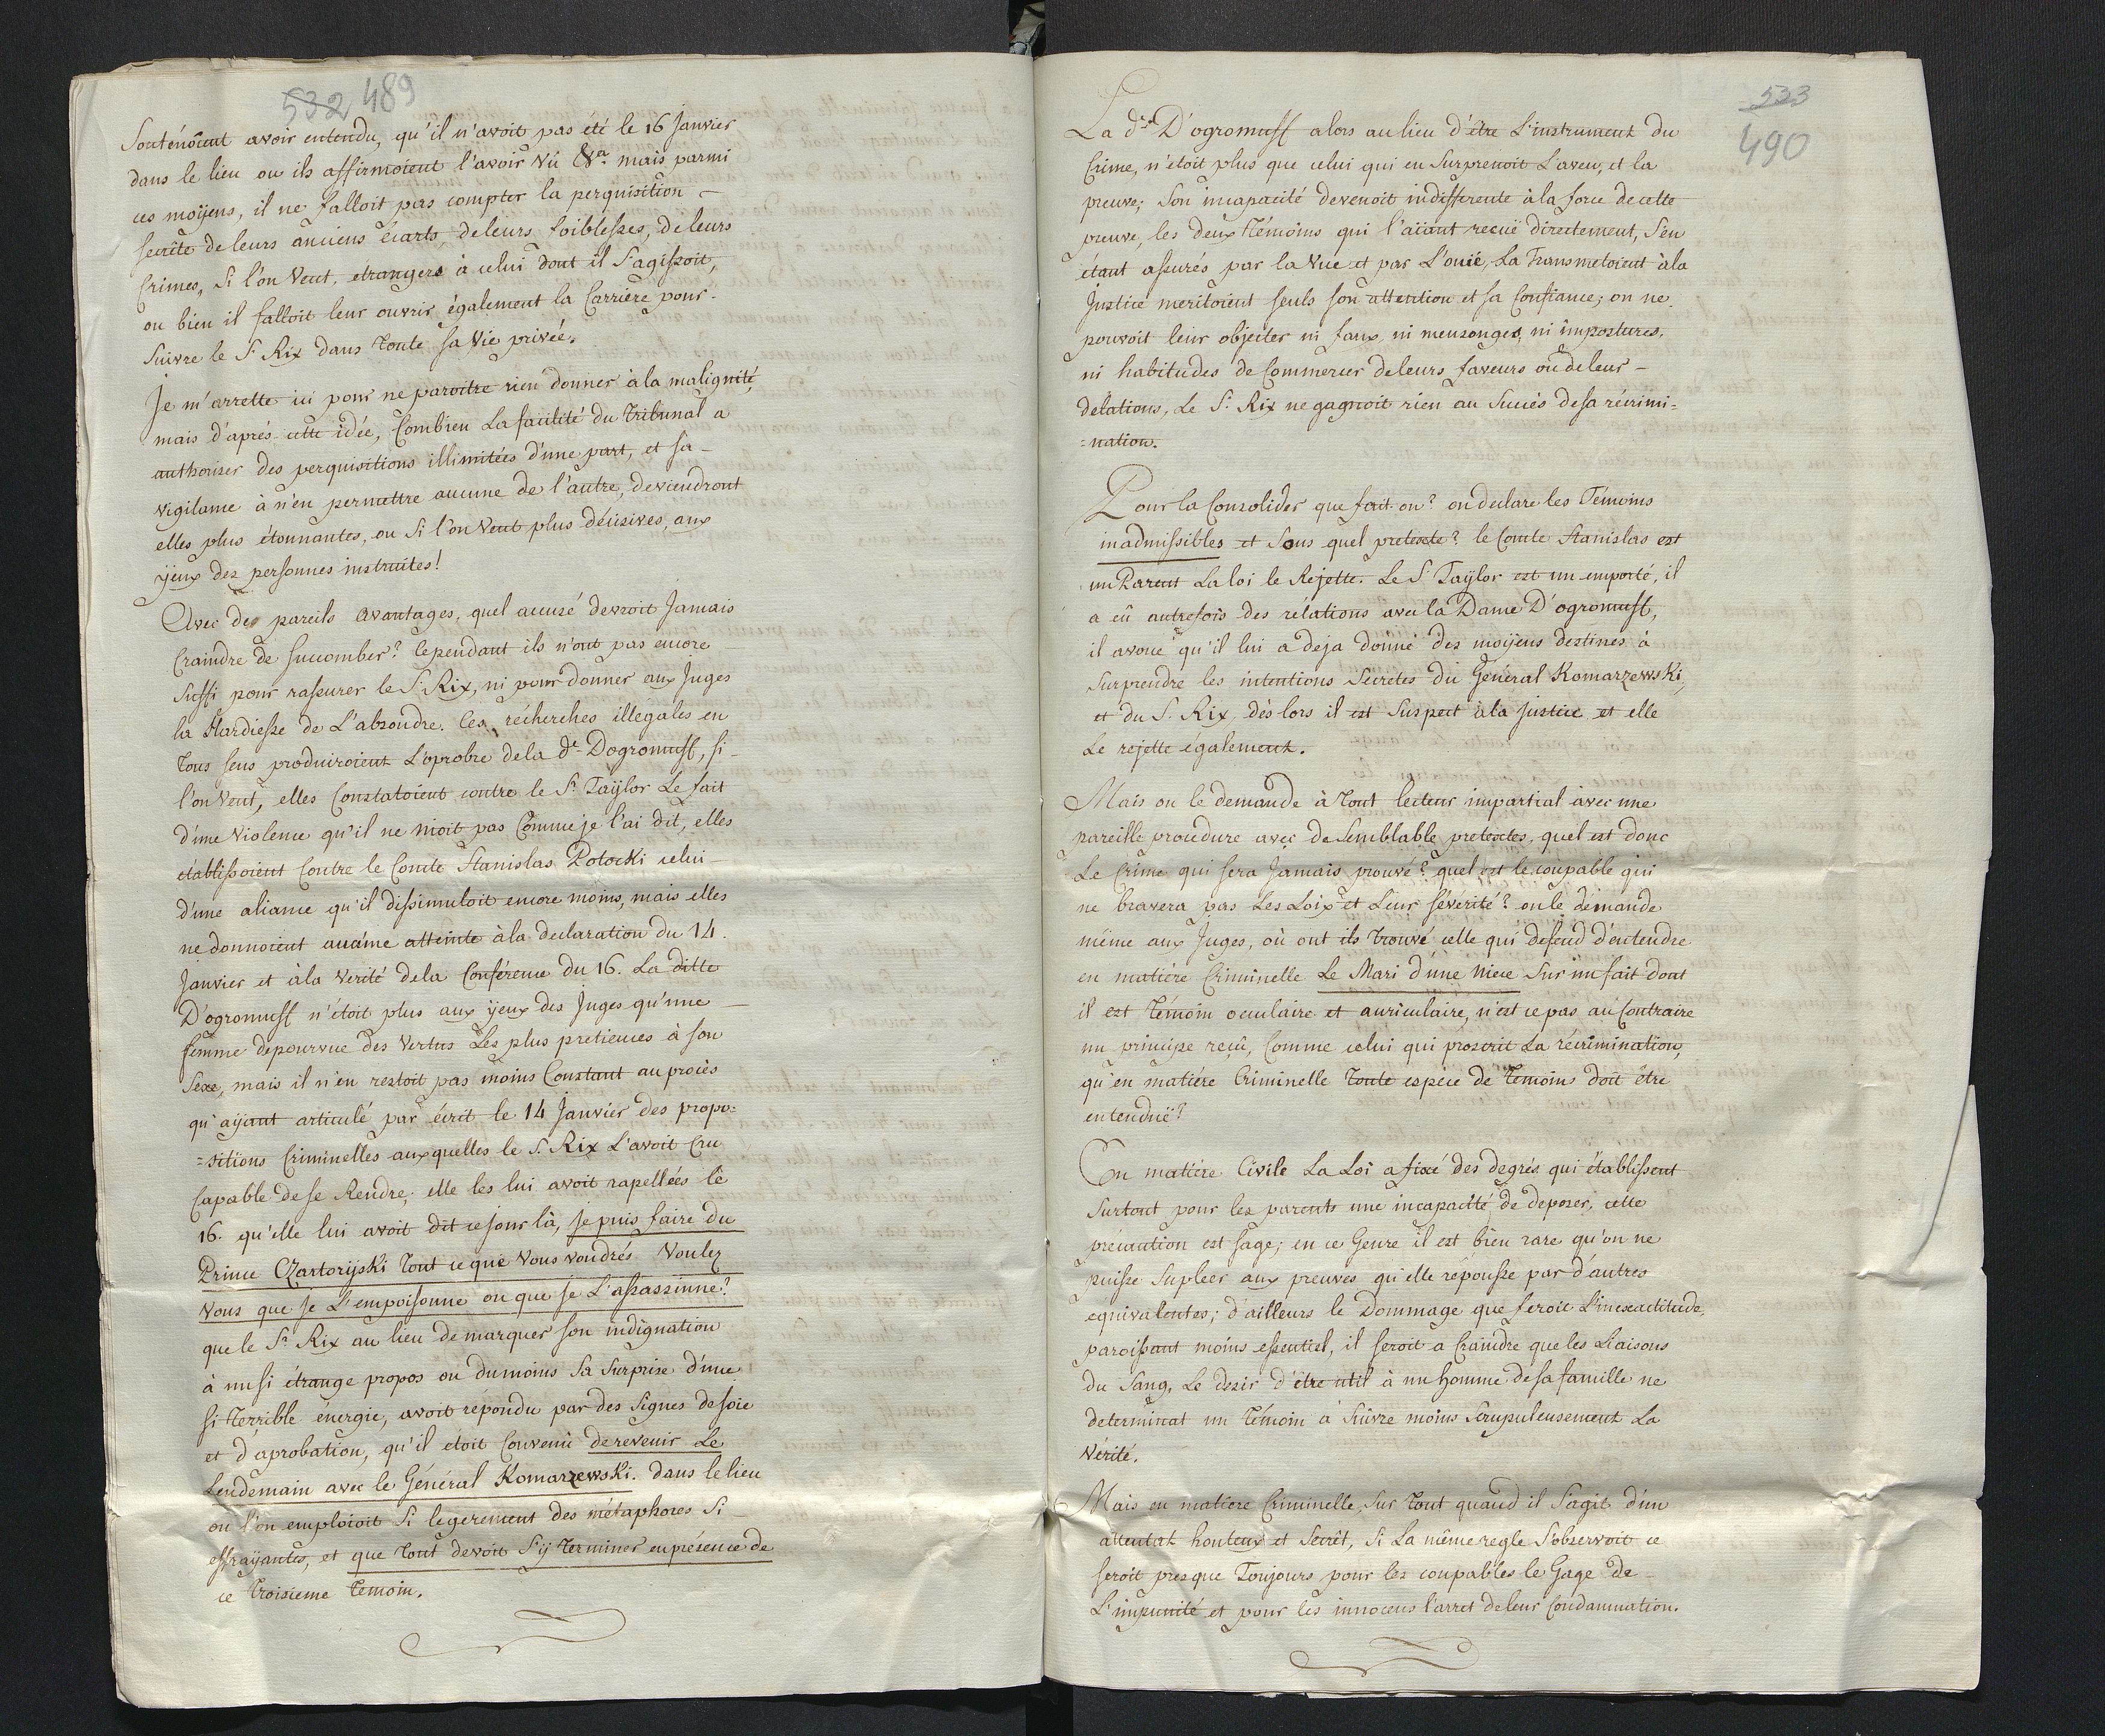 532 489
Souténoient avoir entendu, qu'il n'avoit pas été le 16 Janvier
dans le lieu ou ils affirmoient l'avoir vû &ca. mais parmi
ces moÿens, il ne falloit pas compter la perquisition -
secrête de leurs anciens écarts, de leurs foiblesses, de leurs
Crimes, Si l'on Veut, étrangers à celui dont il S'agissoit,
ou bien il falloit leur ouvrir également la Carrière pour-
Suivre le Sr. Rix dans toute sa Vie privée.
Je m'arrette ici pour ne paroitre rien donner à la malignité,
mais d'aprés cette idée, Combien La facilité du Tribunal a
authoriser des perquisitions illimitées d'une part, et sa -
vigilance à n'en permettre aucune de l'autre, deviendront
elles plus étonnantes, ou Si l'on Veut plus décisives, aux
ÿeux des personnes instruites!
Avec de pareils Avantages, quel accusé devroit Jamais
Craindre de succomber? Cependant ils n'ont pas encore -
Suffi pour rassurer le Sr. Rix, ni pour donner aux Juges
la Hardiesse de L'absoudre. Ces récherches illégales en
Tous sens produiroient L'oprobre de la de. Dogrumuff, si -
l'on Veut, elles Constatoient contre le Sr. Taÿlor Le fait
d'une Violence qu'il ne nioit pas Comme je l'ai dit, elles
établissoient Contre le Comte Stanislas Potocki celui -
d'une aliance qu'il dissimuloit encore moins, mais elles
ne donnoient aucune atteinte à la declaration du 14.
Janvier et à la Verité de la Conférence du 16. La ditte
D'ogromuff n'étoit plus aux ÿeux des Juges qu'une -
femme depourvue des Vertus Les plus pretieuces à son
Sexe, mais il n'en restoit pas moins Constant au procès
qu'aÿant articulé par écrit le 14 Janvier des propo=
=sitions Criminelles auxquelles le S. Rix L'avoit Cru
Capable de se Rendre; elle les lui avoit rapellées le
16. qu'elle lui avoit dit ce jour là, je puis faire du
Prince Czartorÿski Tout ce que Vous voudrés Voulez
Vous que je L'empoisonne ou que je L'assassinne?
que le Sr. Rix au lieu de marquer son indignation
à un si étrange propos ou du moins Sa Surprise d'une
si Terrible énergie, avoit répondu par des Signes de joie
et d'aprobation, qu'il etoit Convenû de revenir Le
Lendemain avec le Général Komarzewski. dans le lieu
ou l'on emploioit Si legerement des métaphores Si -
effraÿantes, et que Tout devoit S'ÿ Terminer en présence de
ce Troisieme Temoin.
533
490
La de. D'ogromuff alors au lieu d'être L'instrument du
Crime, n'étoit plus que celui qui en Surprenoit L'aveu, et la
preuve; Son incapacité devenoit indifferente à la force de cette
preuve, les deux Témoins qui l'aïant reçuë directement, S'en
étant assurés par la Vue et par L'ouïe, La Transmetoient à la
Justice meritoient seuls son attention et sa Confiance; on ne
pouvoit leur objecter ni faux, ni mensonges, ni impostures,
ni habitudes de Commercer de leurs faveurs ou de leur -
delations, Le S. Rix ne gagnoit rien au Succès de sa récrimi=
=nation.
Pour la Consolider que fait on? on declare les Témoins
inadmissibles et Sous quel pretexte? le Comte Stanislas est
un Parent La loi le Rejette. Le S. Taÿlor est un emporté, il
a eû autrefois des rélations avec la Dame D'ogromuff,
il avoüe qu'il lui a deja donné des moÿens destines à
Surprendre les intentions Secretes du Général Komarzewski,
et du S. Rix, dès lors il est Suspect à la justice et elle
Le rejette également.
Mais on le demande à Tout lecteur impartial avec une
pareille procedure avec de Semblable pretextes, quel est donc
Le Crime qui sera Jamais prouvé? quel est le coupable qui
ne bravera pas Les Loix et Leur sévérité? on le demande
même aux Juges, où ont ils trouvé celle qui defend d'entendre
en matière Criminelle Le Mari d'une Niece Sur un fait dont
il est Témoin oculaire et auriculaire, n'est ce pas au Contraire
un principe reçû, Comme celui qui proscrit La récrimination,
qu'en matiére Criminelle Toute espéce de Temoins doit être
entenduë?
En matiére Civile La Loi a fixé des degrés qui établissent
Surtout pour les parents une incapacité de deposer, cette
précaution est sage; en ce Genre il est bien rare qu'on ne
puisse Supleer aux preuves qu'elle répousse par d'autres
equivalentes; d'ailleurs le Dommage que feroit L'inexactitude,
paroissant moins essentiel, il seroit a Craindre que les Liaisons
du Sang, Le desir d'être util à un homme de sa famille ne
determinat un Témoin a Suivre moins Scrupuleusement La
Vérité.
Mais en matiere Criminelle, Sur Tout quand il S'agit d'un
attentat honteux et Secrêt, Si La même regle S'observoit ce
seroit presque Toujours pour les coupables le Gage de -
L'impunité et pour les innocens l'arret de leur Condamnation.